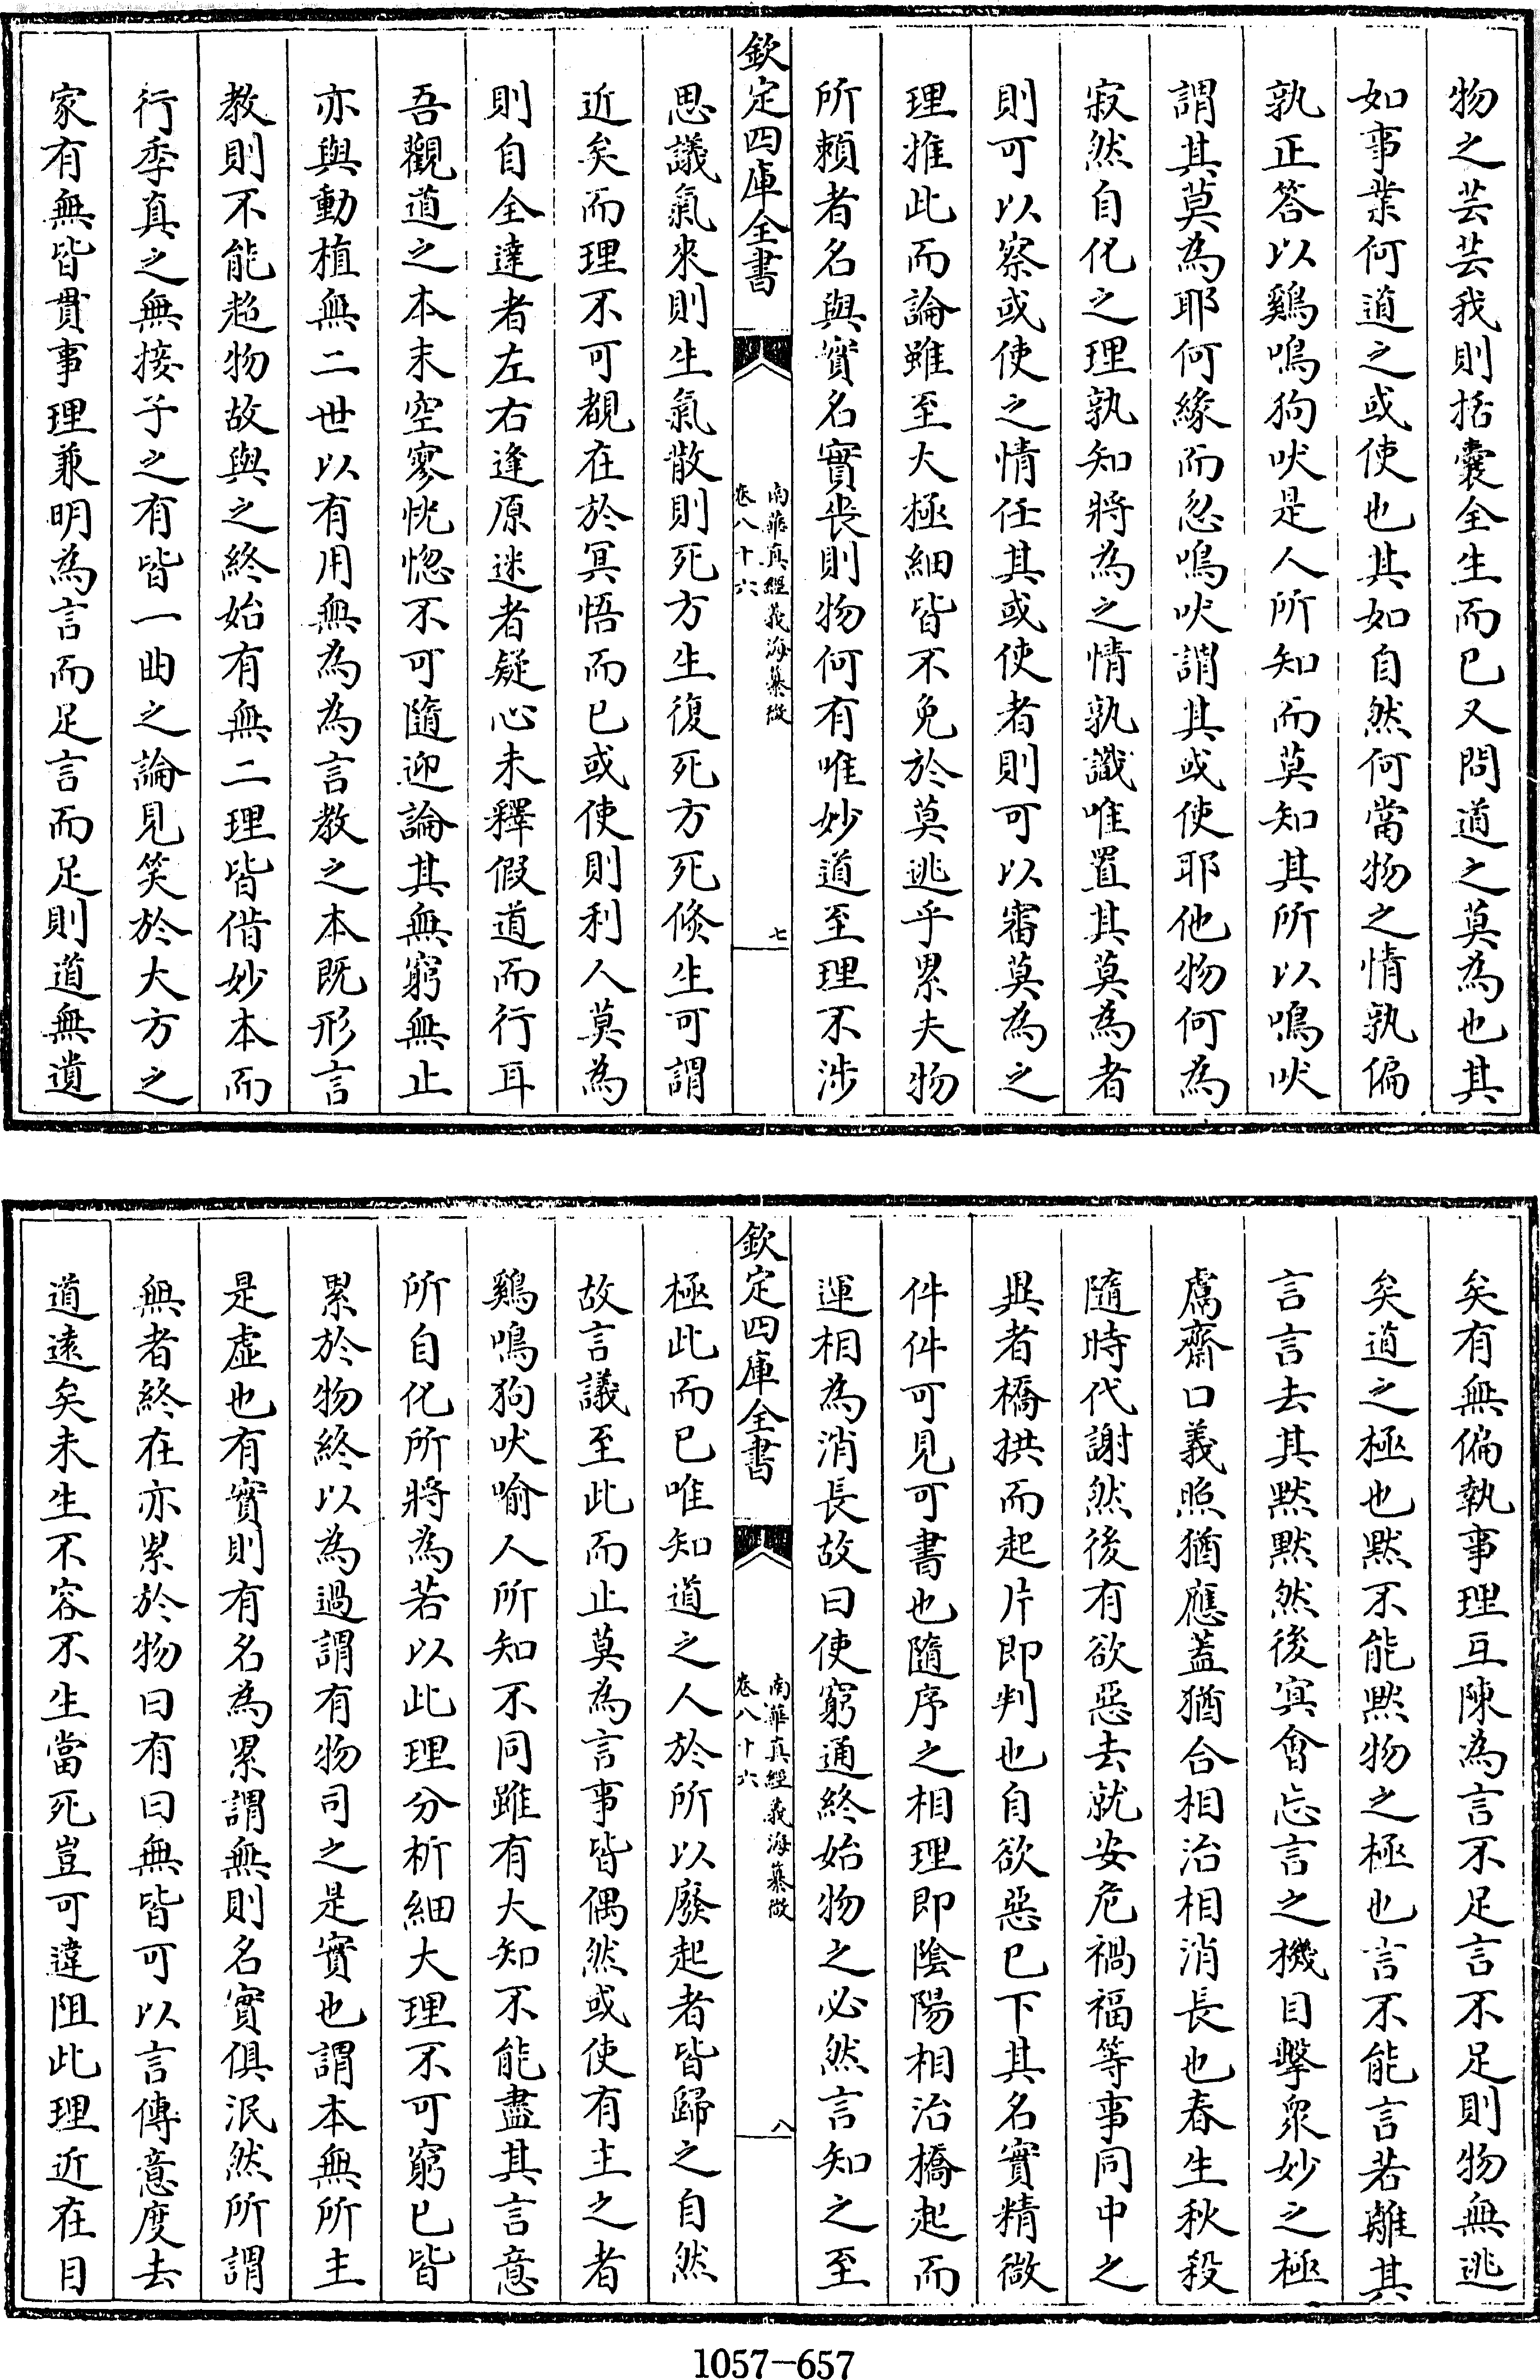 物之芸芸我則括囊全生而已又問道之莫為也其
如事業何道之或使也其如自然何當物之情孰偏
孰正答以鷄鳴狗吠是人所知而莫知其所以鳴吠
謂其莫為耶何緣而忽鳴吠謂其或使耶他物何為
寂然自化之理孰知將為之情孰識唯置其莫為者
則可以察或使之情任其或使者則可以審莫為之
理推此而論雖至大極細皆不免於莫逃乎累夫物
所賴者名與實名實喪則物何有唯妙道至理不涉
欽定四庫全書
南華真經義海纂微
卷八十六
七
思議氣來則生氣散則死方生復死方死倏生可謂
近矣而理不可覩在於冥悟而已或使則利人莫為
則自全達者左右逢原迷者疑心未釋假道而行耳
吾觀道之本末空寥恍惚不可隨迎論其無窮無止
亦與動植無二世以有用無為為言教之本既形言
教則不能超物故與之終始有無二理皆借妙本而
行季真之無接子之有皆一曲之論見笑於大方之
家有無皆貫事理兼明為言而足言而足則道無遺
矣有無偏執事理互陳為言不足言不足則物無逃
矣道之極也默不能黙物之極也言不能言若離其
言言去其黙黙然後冥會忘言之機目擊衆妙之極
鬳齋口義照猶應蓋猶合相治相消長也春生秋殺
隨時代謝然後有欲惡去就安危禍福等事同中之
異者橋拱而起片即判也自欲惡已下其名實精微
件件可見可書也隨序之相理即陰陽相治橋起而
運相為消長故曰使窮通終始物之必然言知之至
欽定四庫全書
南華真經義海纂微
卷八十六
八
極此而已唯知道之人於所以廢起者皆歸之自然
故言議至此而止莫為言事皆偶然或使有主之者
鷄鳴狗吠喻人所知不同雖有大知不能盡其言意
所自化所將為若以此理分析細大理不可窮已皆
累於物終以為過謂有物司之是實也謂本無所主
是虛也有實則有名為累謂無則名實俱泯然所謂
無者終在亦累於物曰有曰無皆可以言傳意度去
道逺矣未生不容不生當死豈可違阻此理近在目
1057-657